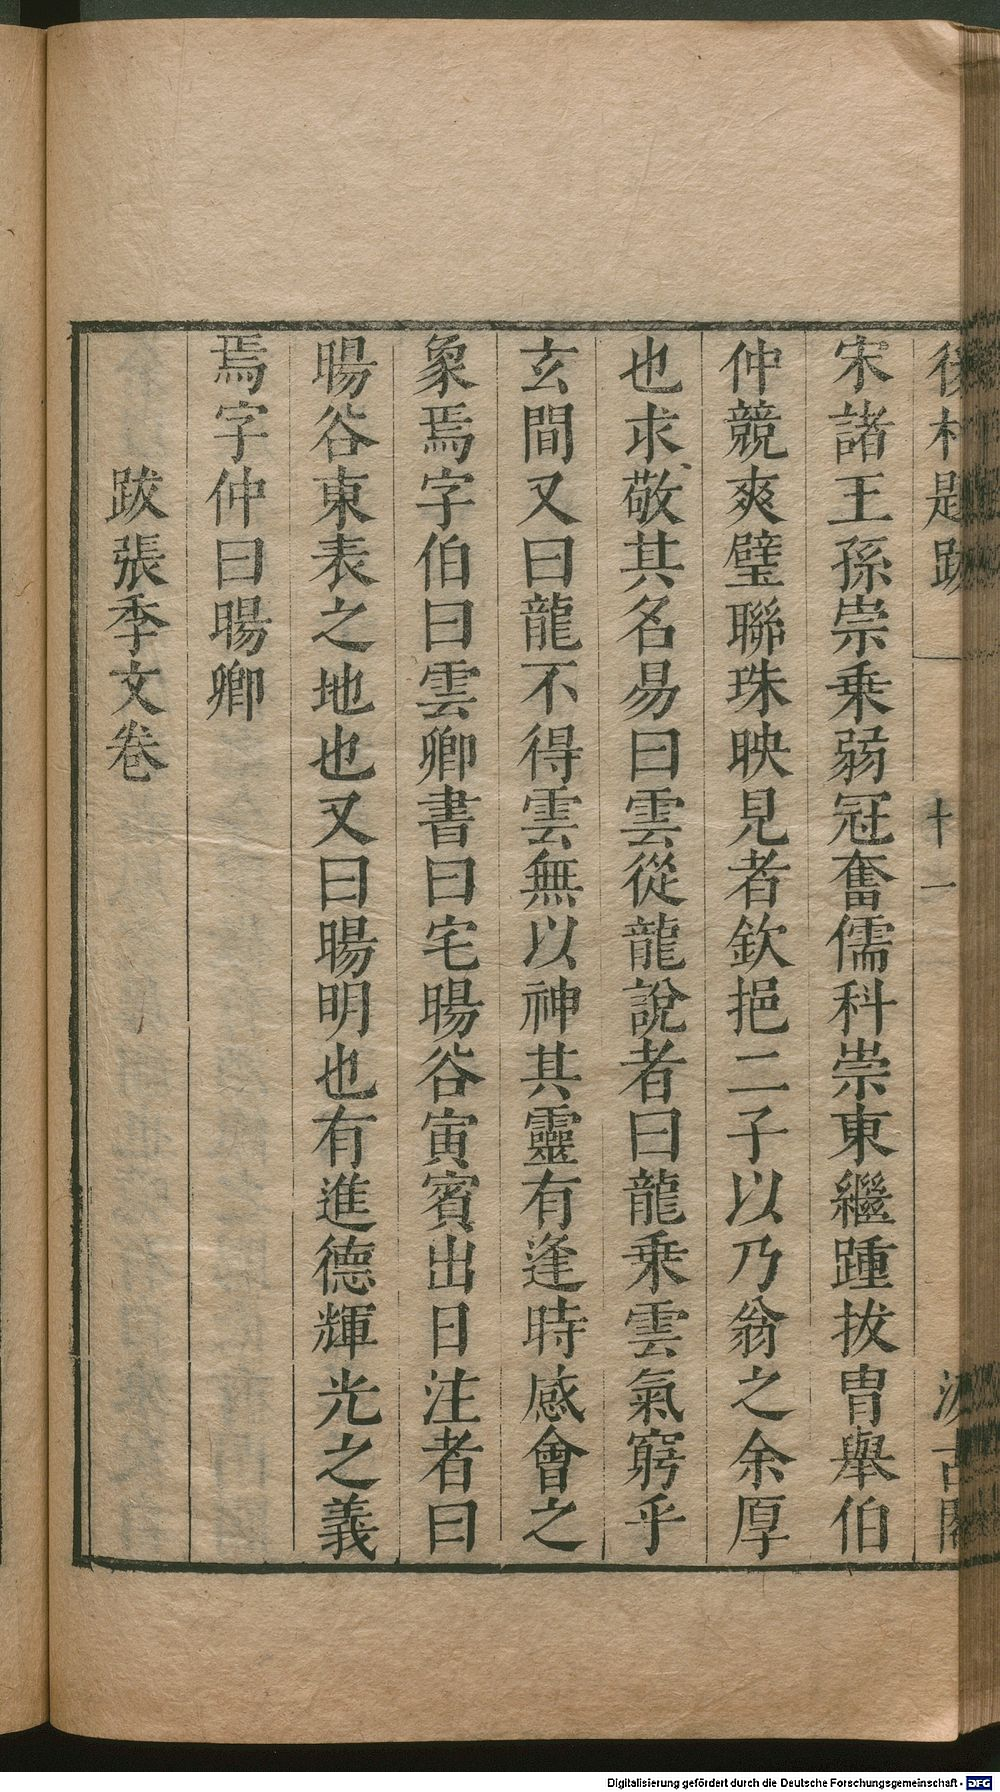 後村題跋
十一
汲古閣
宋諸王孫崇乗弱冠奮儒科崇東繼踵拔胄舉伯
仲競爽璧聯珠映見者欽挹二子以乃翁之余厚
也求敬其名易曰雲從龍說者曰龍乘雲氣窮乎
玄間又曰龍不得雲無以神其靈有逢時感會之
象焉字伯曰雲卿書曰宅暘谷寅賓出日注者曰
暘谷東表之地也又曰暘明也有進德輝光之義
焉字仲曰暘卿
跋張季文卷
Digitalisierung gefördert durch die Deutsche Forschungsgemeinschaft - DFG